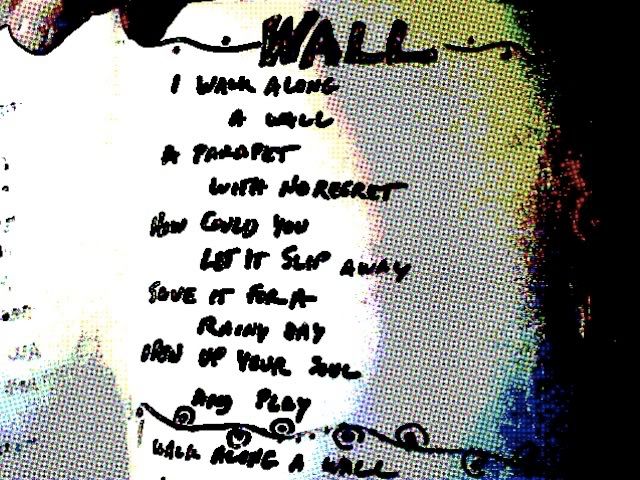 WALL
I WALK ALONG
A WALL
A PARAPET
WITH NO REGRET
HOW COULD YOU
LET IT SLIP AWAY
SAVE IT FOR A
RAINY DAY
OPEN UP YOUR SOUL
AND PLAY
WALK ALONG A WALL